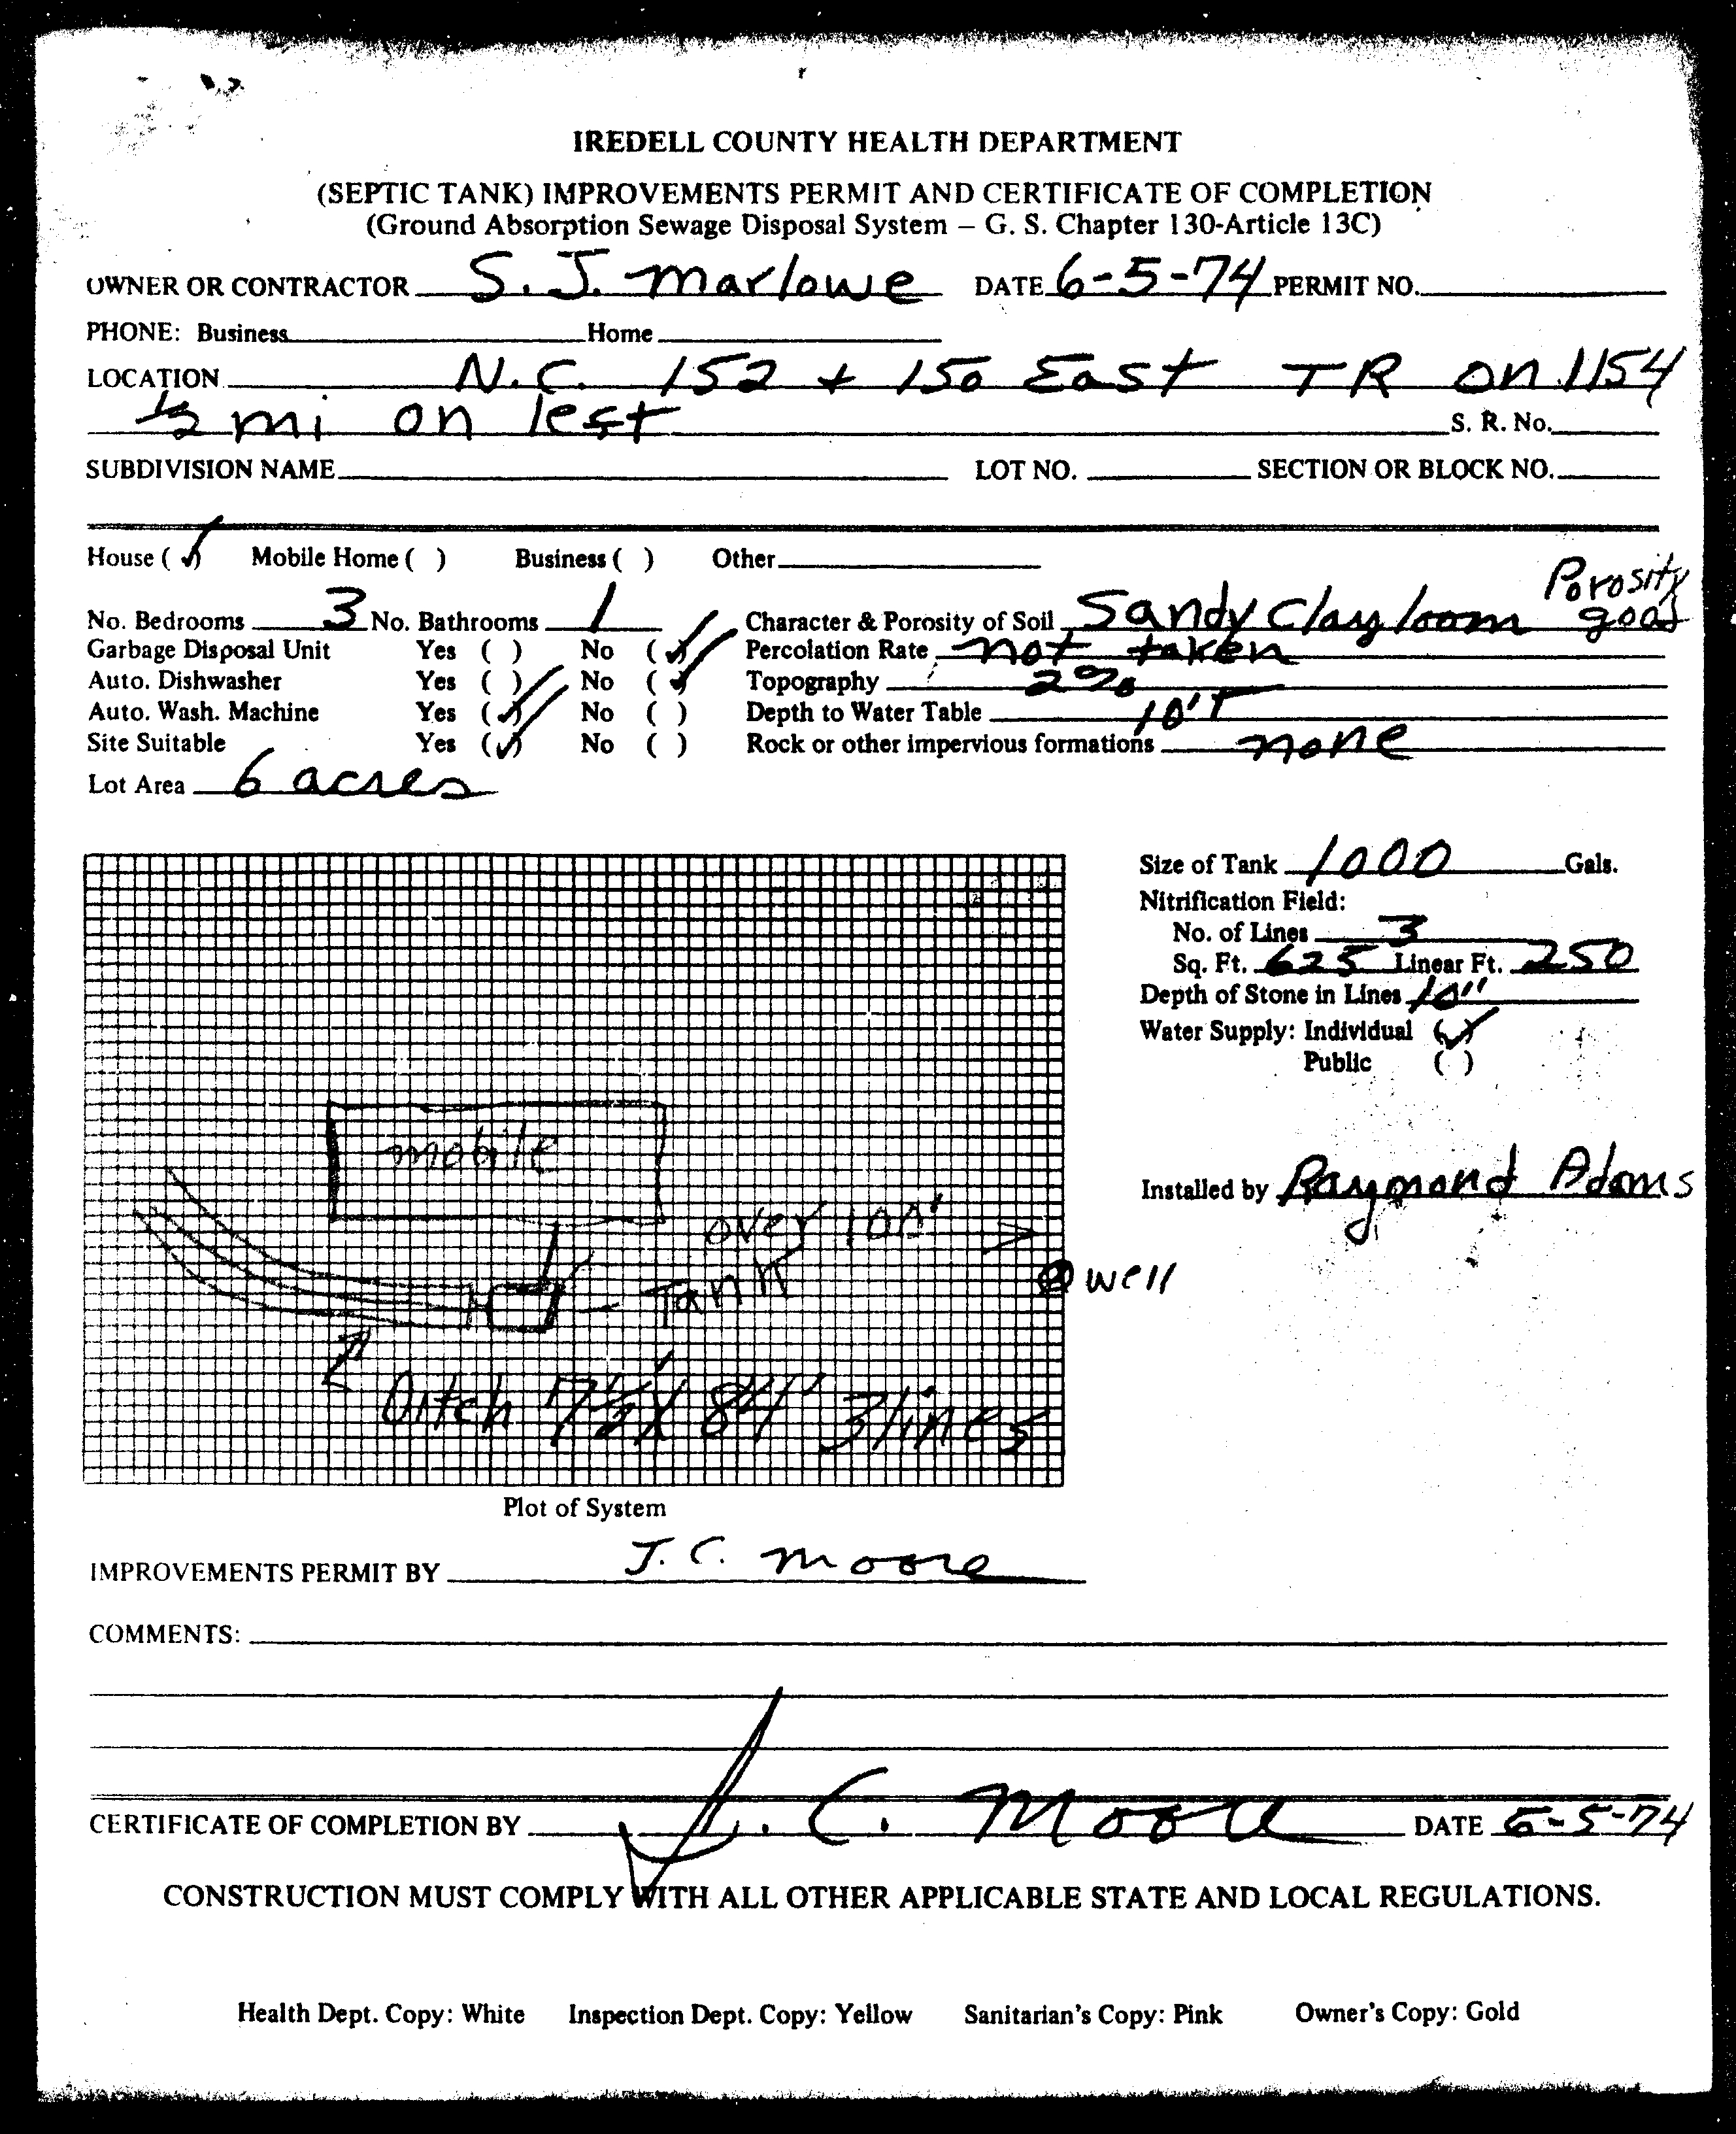 IREDELL COUNTY HEALTH DEPARTMENT
(SEPTIC TANK) IMPROVEMENTS PERMIT AND CERTIFICATE OF COMPLETION
(Ground Absorption Sewage Disposal System – G. S. Chapter 130-Article 13C)
OWNER OR CONTRACTOR S. J. Marlowe DATE 6-5-74 PERMIT NO.
PHONE: Business Home
LOCATION N.C. 152 + 150 East TR on 1154
½ mi on left S. R. No.
SUBDIVISION NAME LOT NO. SECTION OR BLOCK NO.
House (✓) Mobile Home ( ) Business ( ) Other
No. Bedrooms 3 No. Bathrooms 1 Character & Porosity of Soil Sandy Clay loom Porosity good
Garbage Disposal Unit Yes ( ) No (✓) Percolation Rate not taken
Auto. Dishwasher Yes ( ) No (✓) Topography 2%
Auto. Wash. Machine Yes (✓) No ( ) Depth to Water Table 10'+
Site Suitable Yes (✓) No ( ) Rock or other impervious formations none
Lot Area 6 acres
Size of Tank 1000 Gals.
Nitrification Field:
No. of Lines 3
Sq. Ft. 625 Linear Ft. 250
Depth of Stone in Lines 10"
Water Supply: Individual (✓)
Public ( )
mobile
Installed by Raymond Adams
over 100'
well
Tank
Ditch 7½' X 84' 3 lines
Plot of System
IMPROVEMENTS PERMIT BY J. C. Moore
COMMENTS:
CERTIFICATE OF COMPLETION BY J. C. Moore DATE 6-5-74
CONSTRUCTION MUST COMPLY WITH ALL OTHER APPLICABLE STATE AND LOCAL REGULATIONS.
Health Dept. Copy: White Inspection Dept. Copy: Yellow Sanitarian's Copy: Pink Owner's Copy: Gold